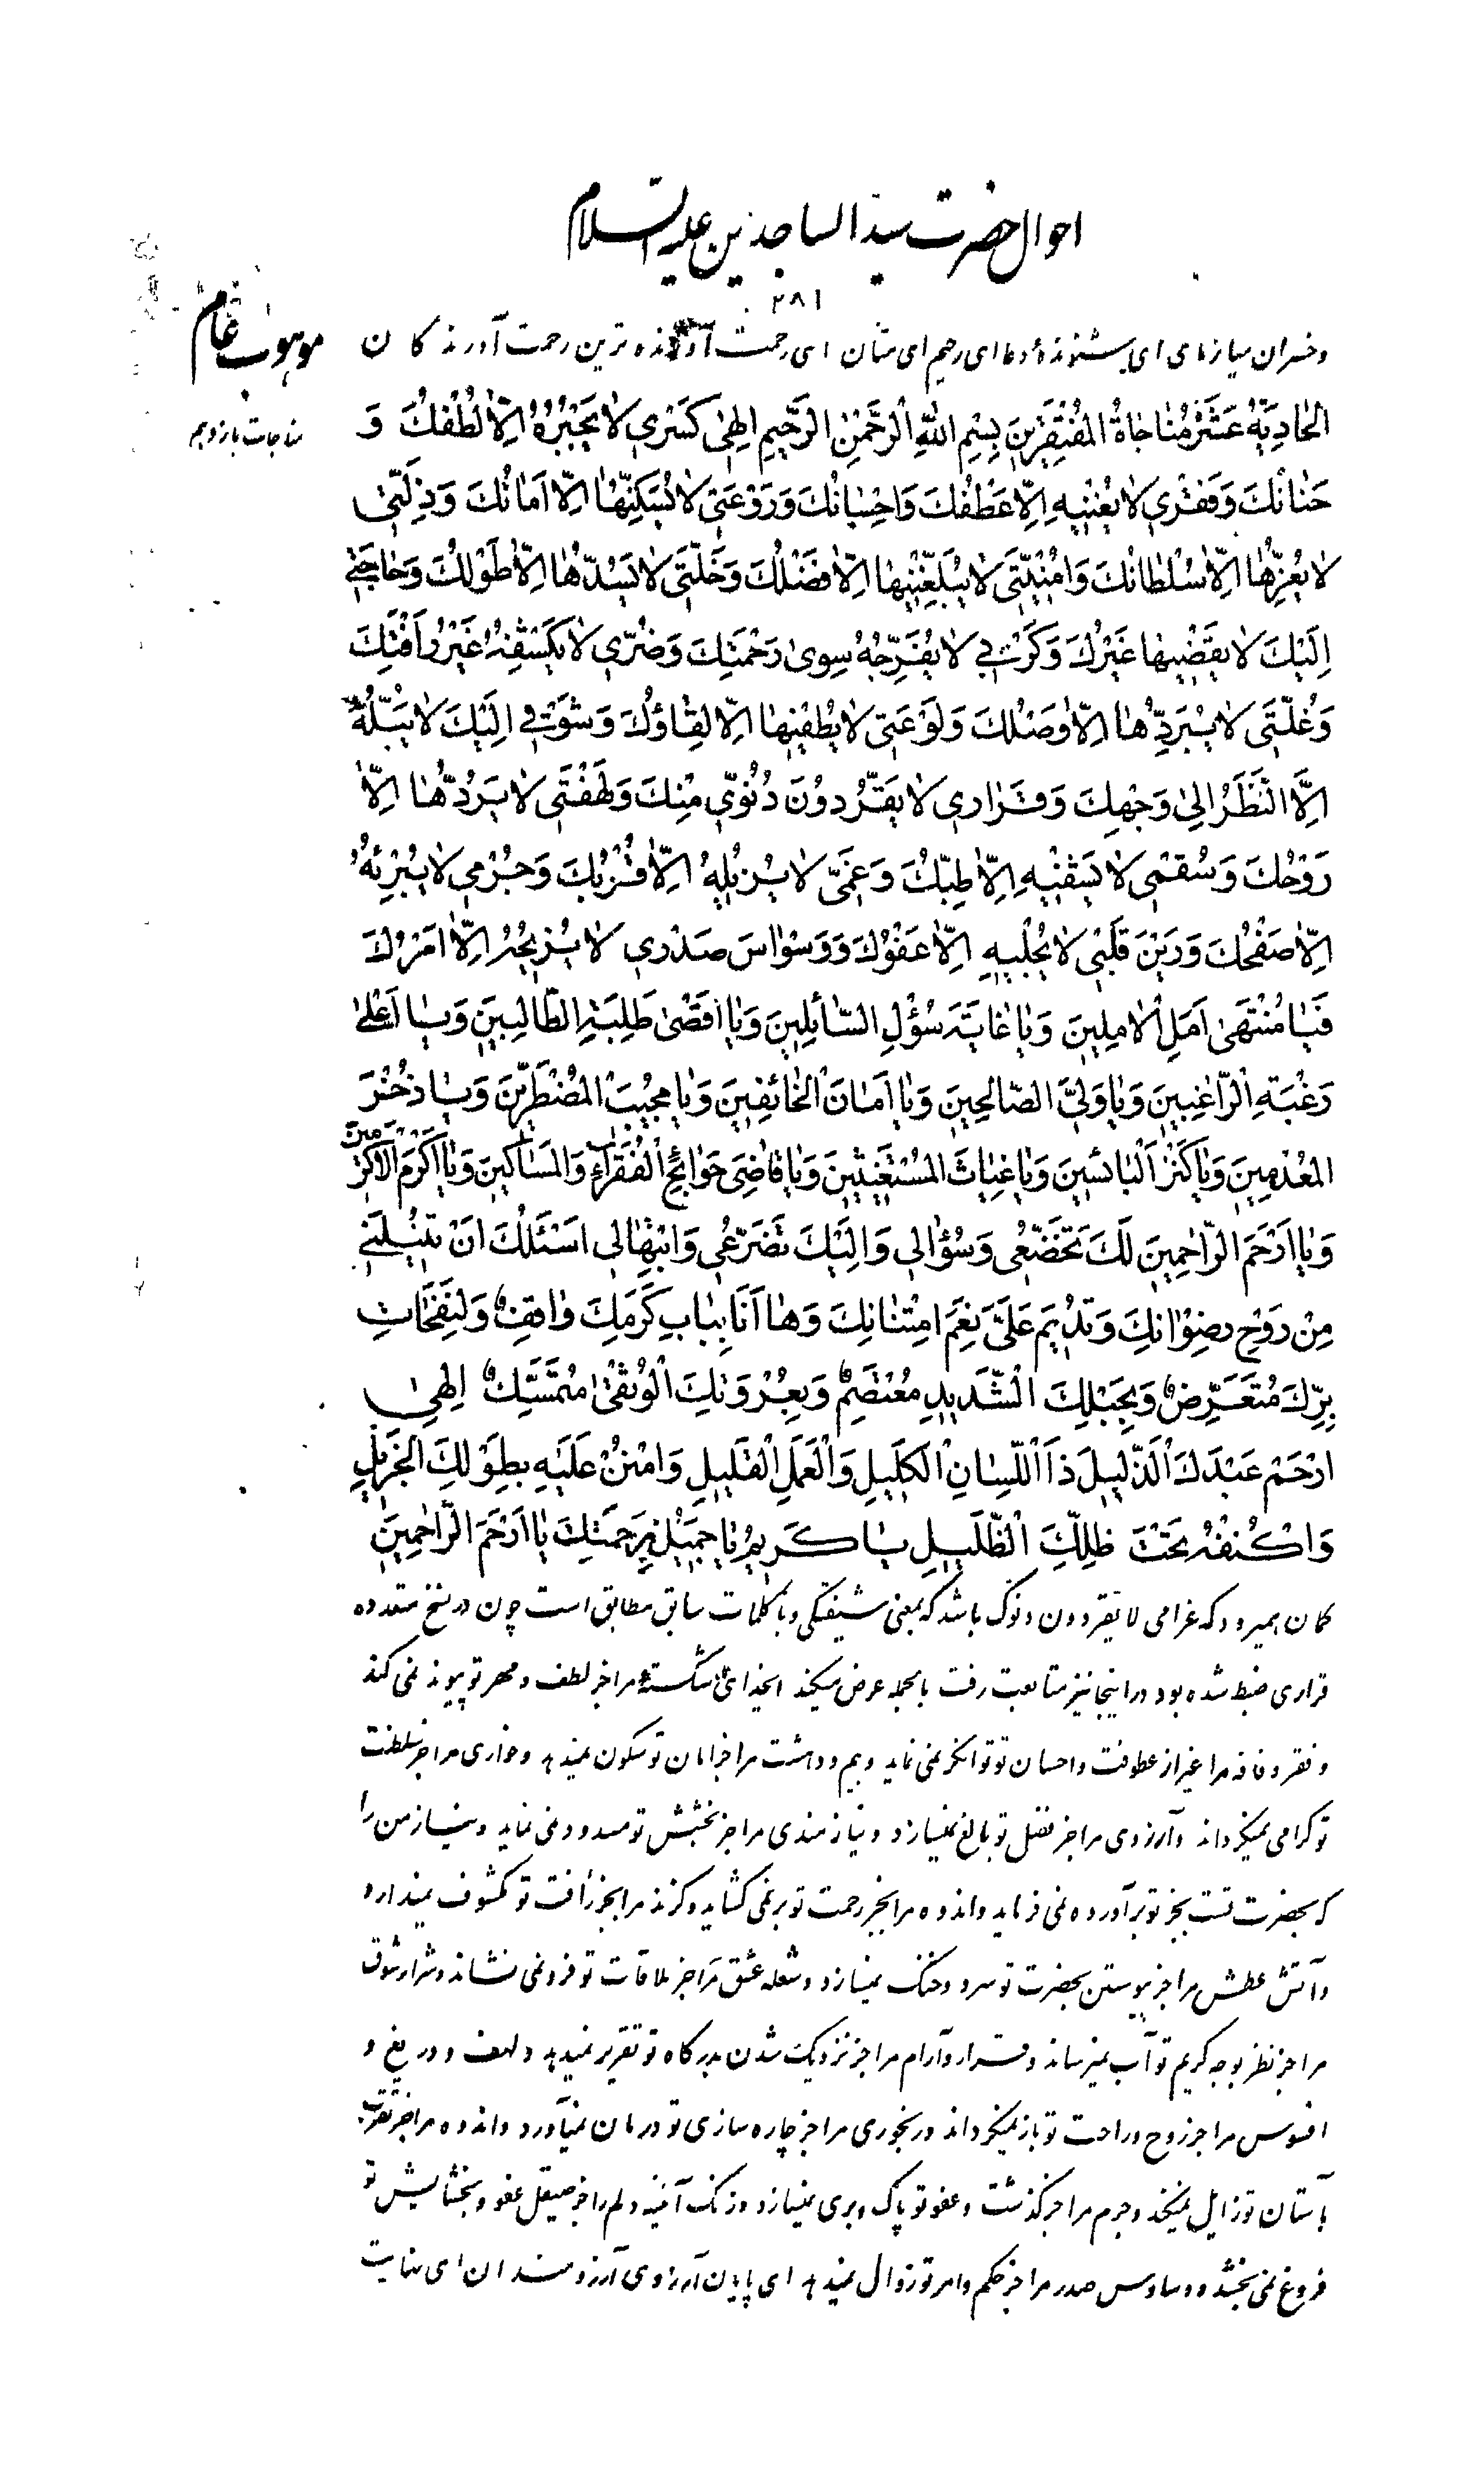 احوال حضرت سید الساجدین علیه السلام
۲۸۱
و خسران میازمای ای شنونده دعا ای رحیم ای منان ای رحمت آورنده ترین رحمت آورندکان
موهوب عام
مناجات یازدهم
الْحادِيَةُ عَشَرَ مُناجاةُ الْمُفْتَقِرينَ بِسْمِ اللهِ الرَّحْمنِ الرَّحيمِ اِلهى كَسْرى لا يَجْبُرُهُ اِلّا لُطْفُكَ وَ
حَنانُكَ وَفَقْرى لا يُغْنيهِ اِلّا عَطْفُكَ وَاِحْسانُكَ وَرَوْعَتى لا يُسَكِّنُها اِلّا اَمانُكَ وَذِلَّتى
لا يُعِزُّها اِلّا سُلْطانُكَ وَاُمْنِيَّتى لا يُبَلِّغُنيها اِلّا فَضْلُكَ وَخَلَّتى لا يَسُدُّها اِلّا طَوْلُكَ وَحاجَتى
اِلَيْكَ لا يَقْضيها غَيْرُكَ وَكَرْبى لا يُفَرِّجُهُ سِوى رَحْمَتِكَ وَضُرّى لا يَكْشِفُهُ غَيْرُ رَأْفَتِكَ
وَغُلَّتى لا يُبَرِّدُها اِلّا وَصْلُكَ وَلَوْعَتى لا يُطْفيها اِلّا لِقاؤُكَ وَشَوْقى اِلَيْكَ لا يَبُلُّهُ
اِلَّا النَّظَرُ اِلى وَجْهِكَ وَقَرارى لا يَقَرُّ دُونَ دُنُوّى مِنْكَ وَلَهْفَتى لا يَرُدُّها اِلّا
رَوْحُكَ وَسُقْمى لا يَشْفيهِ اِلّا طِبُّكَ وَغَمّى لا يُزيلُهُ اِلّا قُرْبُكَ وَجُرْمى لا يُبْرِئُهُ
اِلّا صَفْحُكَ وَرَيْنَ قَلْبى لا يَجْليهِ اِلّا عَفْوُكَ وَوَسْواسَ صَدْرى لا يُزيحُهُ اِلّا اَمْرُكَ
فَيا مُنْتَهى اَمَلِ الْآمِلينَ وَيا غايَةَ سُؤْلِ السّائِلينَ وَيا اَقْصى طَلِبَةِ الطّالِبينَ وَيا اَعْلى
رَغْبَةِ الرّاغِبينَ وَيا وَلِىَّ الصّالِحينَ وَيا اَمانَ الْخائِفينَ وَيا مُجيبَ الْمُضْطَرّينَ وَيا ذُخْرَ
الْمُعْدِمينَ وَيا كَنْزَ الْبائِسينَ وَيا غِياثَ الْمُسْتَغيثينَ وَيا قاضِىَ حَوائِجِ الْفُقَراءِ وَالْمَساكينَ وَيا اَكْرَمَ الْاَكْرَمينَ
وَيا اَرْحَمَ الرّاحِمينَ لَكَ تَخَضُّعى وَسُؤالى وَاِلَيْكَ تَضَرُّعى وَابْتِهالى اَسْئَلُكَ اَنْ تُنيلَنى
مِنْ رَوْحِ رِضْوانِكَ وَتُديمَ عَلَىَّ نِعَمَ امْتِنانِكَ وَها اَنَا بِبابِ كَرَمِكَ واقِفٌ وَلِنَفَحاتِ
بِرِّكَ مُتَعَرِّضٌ وَبِحَبْلِكَ الشَّديدِ مُعْتَصِمٌ وَبِعُرْوَتِكَ الْوُثْقى مُتَمَسِّكٌ اِلهى
ارْحَمْ عَبْدَكَ الذَّليلَ ذَا اللِّسانِ الْكَليلِ وَالْعَمَلِ الْقَليلِ وَامْنُنْ عَلَيْهِ بِطَوْلِكَ الْجَزيلِ
وَاكْنُفْهُ تَحْتَ ظِلِّكَ الظَّليلِ يا كَريمُ يا جَميلُ بِرَحْمَتِكَ يا اَرْحَمَ الرّاحِمينَ
کمان میرود که غرامی لا یقر دون دنوک باشد که بمعنی شیفتکی و با کلمات سابق مطابق است چون در نسخ متعدده
قراری ضبط شده بود در اینجا نیز متابعت رفت بالجمله عرض میکند ایخدای شکسته مرا جز لطف و مهر تو پیوند نمی کند
و فقر و فاقه مرا غیر از عطوفت و احسان تو توانکر نمی نماید و بیم و دهشت مرا جز امان تو سکون نمیدهد و خواری مرا جز سلطنت
تو کرامی نمیکرداند و آرزوی مرا جز فضل تو بالغ نمیسازد و نیازمندی مرا جز بخشش تو مسدود نمی نماید و نیاز من را
که بحضرت تست بجز تو برآورده نمی فرماید و اندوه مرا بجز رحمت تو بر نمی کشاید و کزند مرا بجز رأفت تو مکشوف نمیدارد
و آتش عطش مرا جز پیوستن بحضرت تو سرد و خنک نمیسازد و شعله عشق مرا جز ملاقات تو فرو نمی نشاند و شرار شوق
مرا جز نظر بوجه کریم تو آب نمیرساند و قرار و آرام مرا جز نزدیک شدن بدرکاه تو تقریر نمیدهد و لهف و دریغ و
افسوس مرا جز روح و راحت تو باز نمیکرداند و رنجوری مرا جز چاره سازی تو درمان نمیآورد و اندوه مرا جز تقرب
بآستان تو زایل نمیکند و جرم مرا جز کذشت و عفو تو پاک و بری نمیسازد و زنک آئینه دلم را جز صیقل عفو و بخشایش تو
فروغ نمی بخشد و وساوس صدر مرا جز حکم و امر تو زوال نمیدهد ای پایان آرزوی آرزومندان ای نهایت